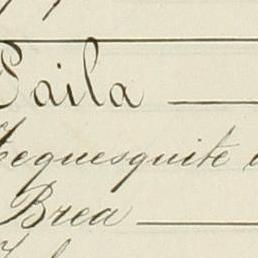 Paila
Tequesquite
Brea